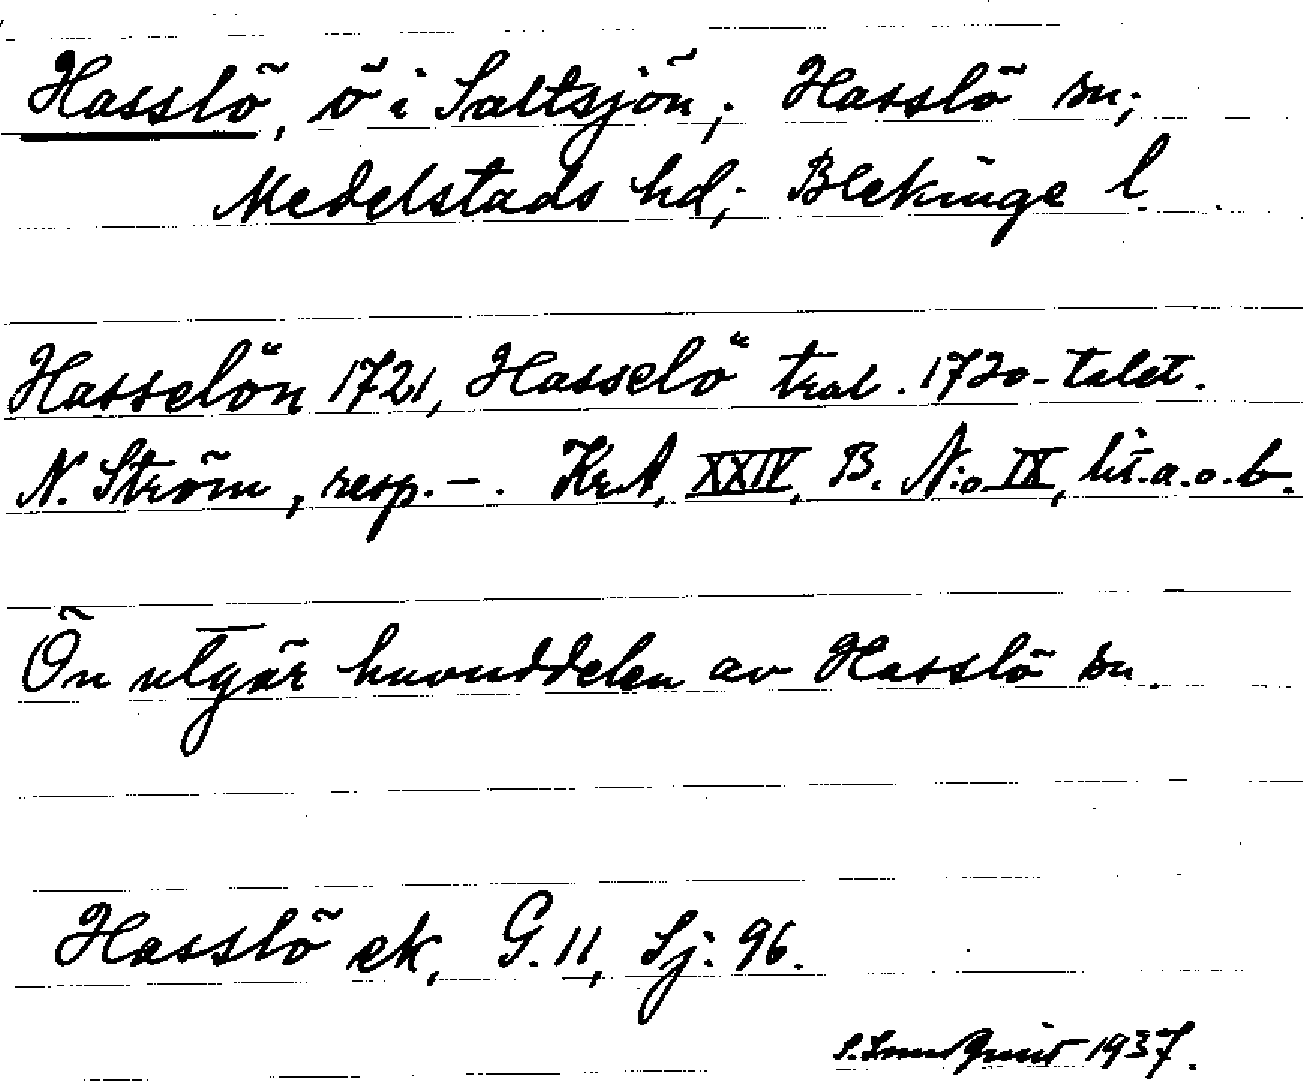 Hasslö, ö i Saltsjön; Hasslö sn;
Medelstads hd; Blekinge l.
Hasselön 1721, Hasselö tral. 1720-talet.
N. Ström, resp. –. KrA, XXIV, B. N:o IX, lit. a. o. b.
Ön utgör huvuddelen av Hasslö sn.
Hasslö ek, G. 11, Sj: 96.
1937.